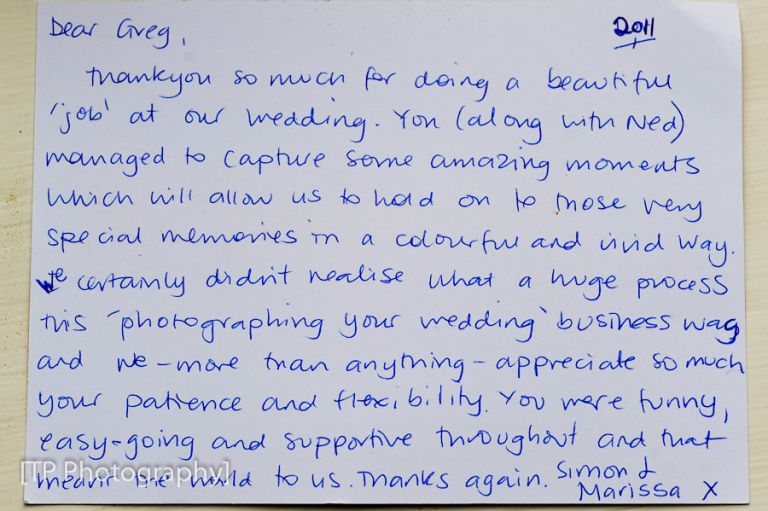 Dear Greg,
2011
thankyou so much for doing a beautiful
'job' at our wedding. You (along with Ned)
managed to capture some amazing moments
which will allow us to hold on to those very
special memories in a colourful and vivid way.
We certainly didn't realise what a huge process
this 'photographing your wedding' business was
and we - more than anything - appreciate so much
your patience and flexibility. You were funny,
easy-going and supportive throughout and that
meant the world to us. Thanks again. Simon &
Marissa X
[TP Photography]